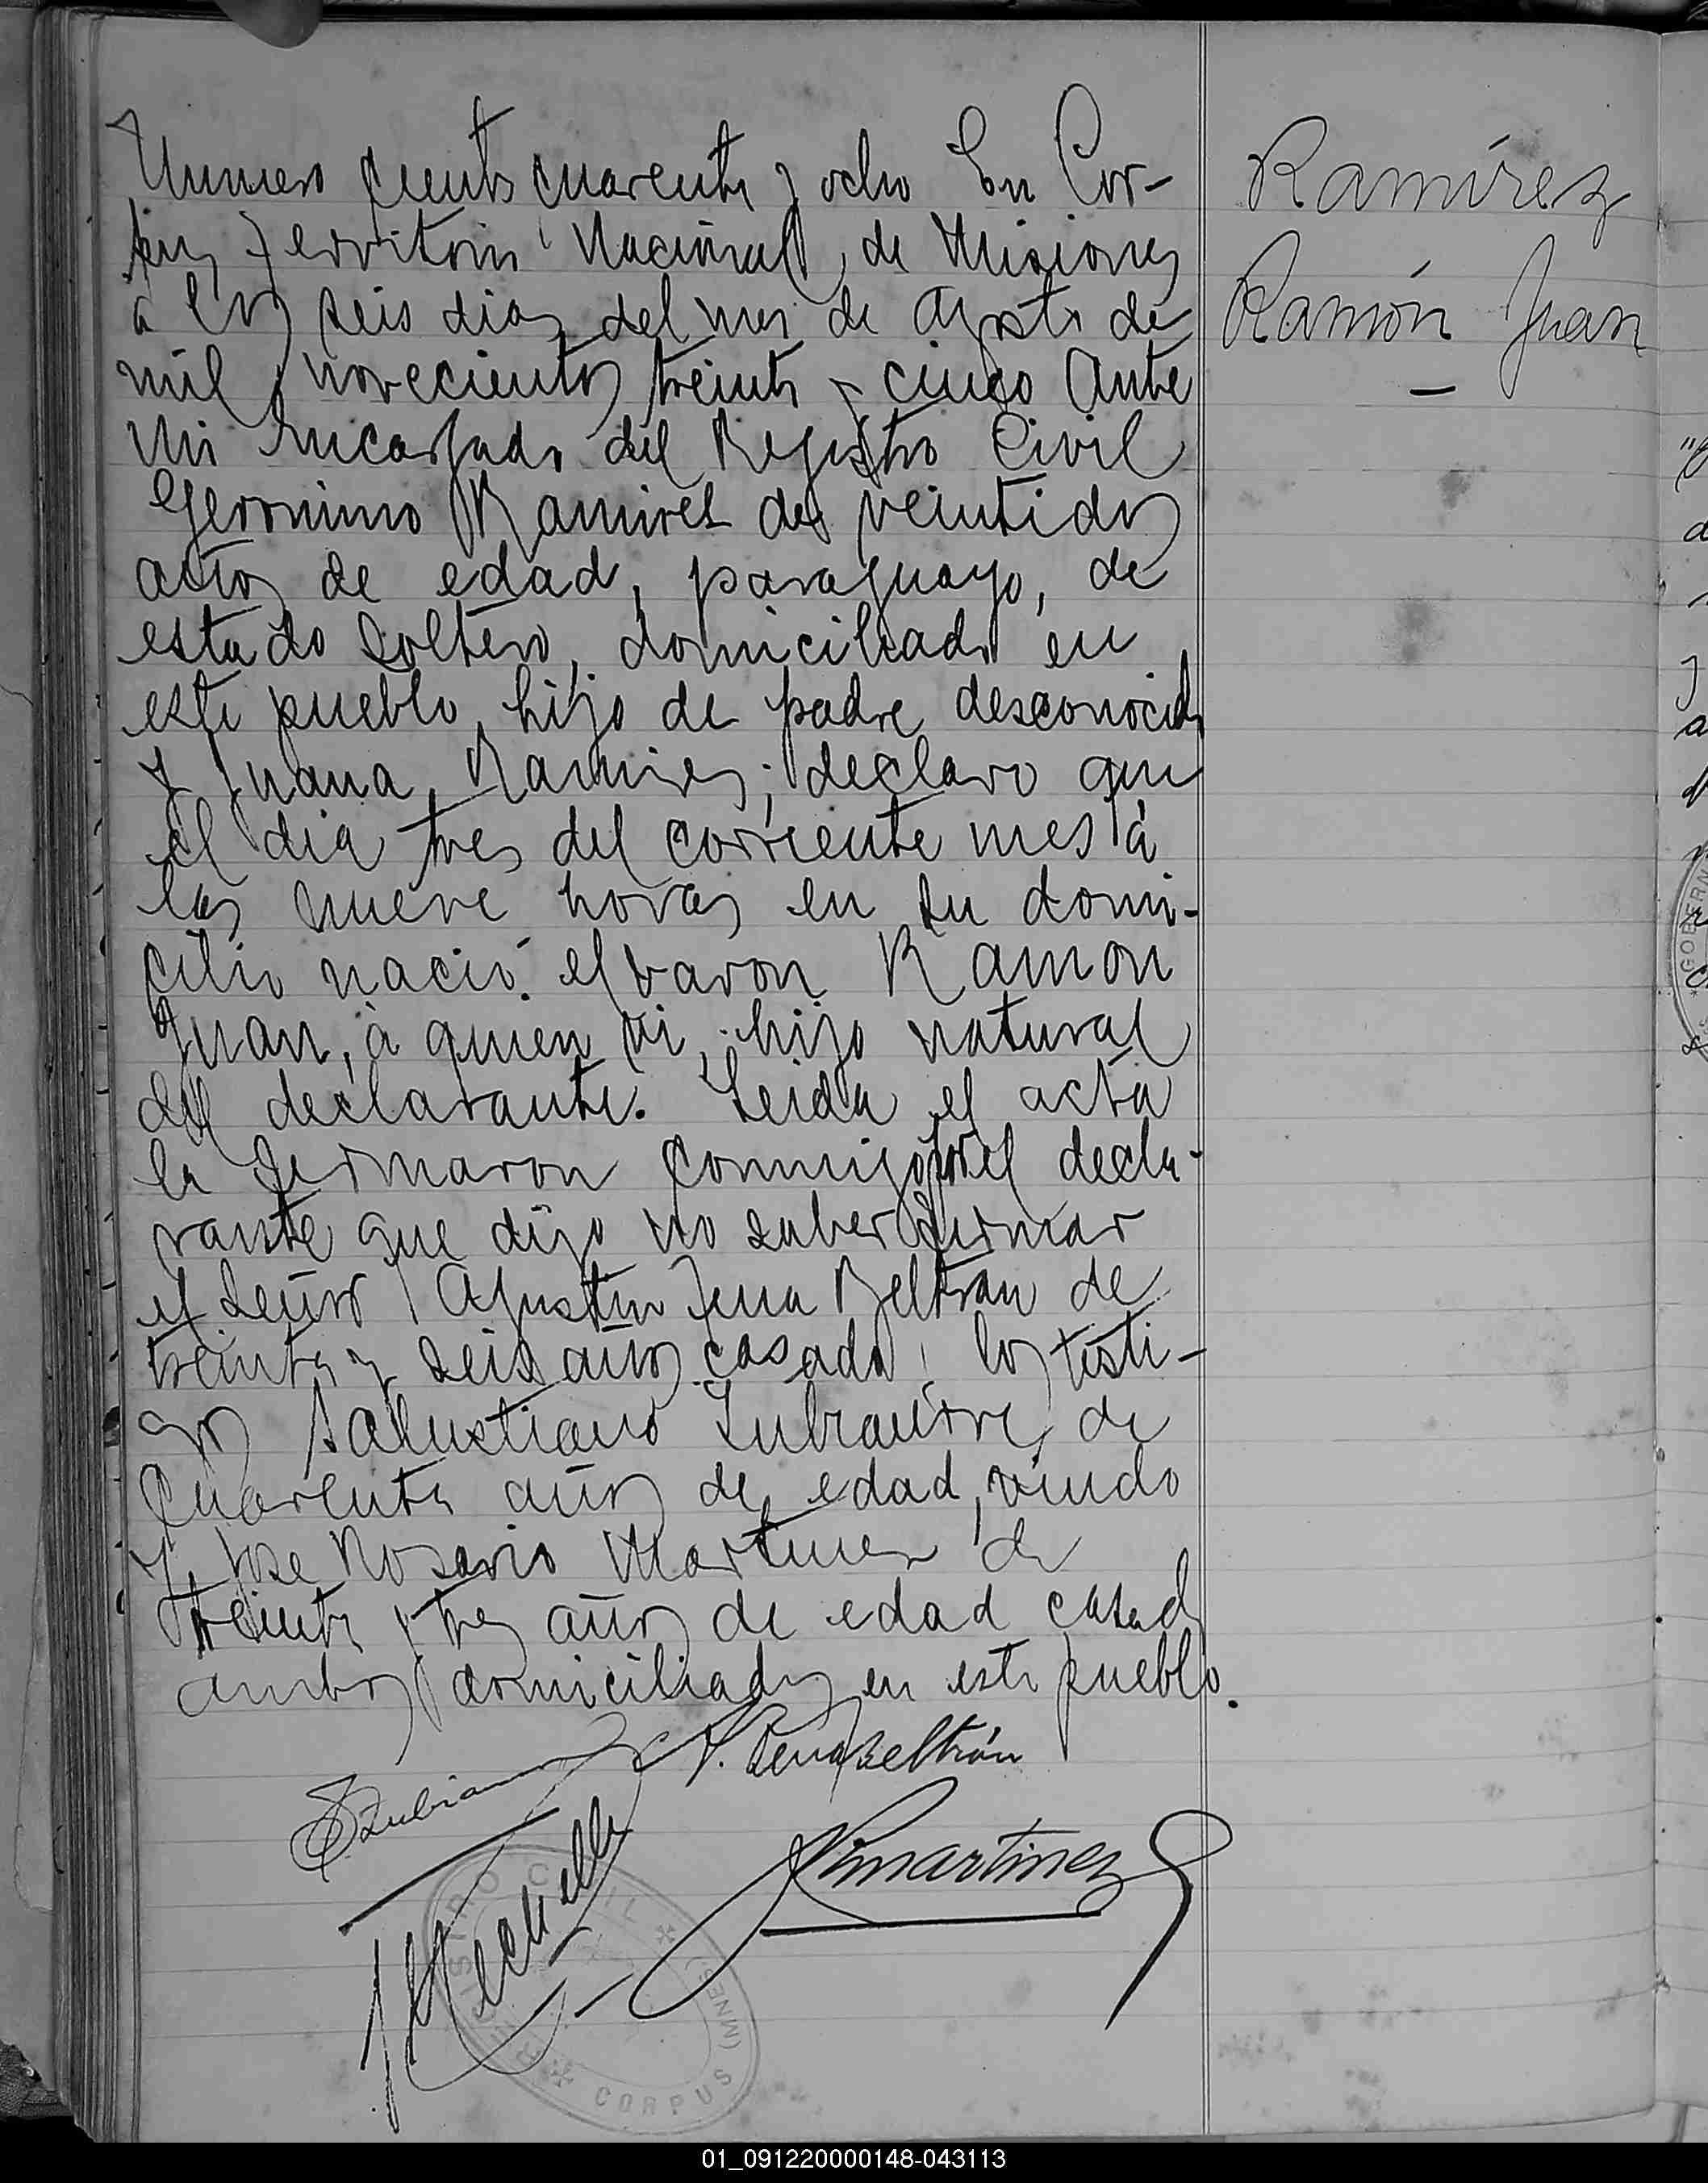 Numero ciento cuarenta y ocho En Cor-
pus Territorio Nacional de Misiones
á los seis dias del mes de Agosto de
mil novecientos treinta y cinco Ante
mi Encargado del Registro Civil
Geronimo Ramirez de veintidos
años de edad, paraguayo, de
estado soltero, domiciliado en
este pueblo, hijo de padre desconocido
y Juana Ramirez; declaro que
el dia tres del corriente mes á
las nueve horas en su domi-
cilio nació el varon Ramon
Juan, à quien vi, hijo natural
del declarante. Leida el acta
la firmaron conmigo por el decla-
rante que dijo no saber firmar
el señor Agustin Pena Beltran de
treinta y seis años casado, los testi-
gos Salustiano de
cuarenta años de edad, viudo
y Jose Rosario Martinez de
treinta y tres años de edad casado
ambos domiciliados en este pueblo.
A. Pena Beltrán
Rmartinez
REGISTRO CIVIL
CORPUS (MNES)
Ramírez
Ramón Juan
GOBERN
01_091220000148-043113